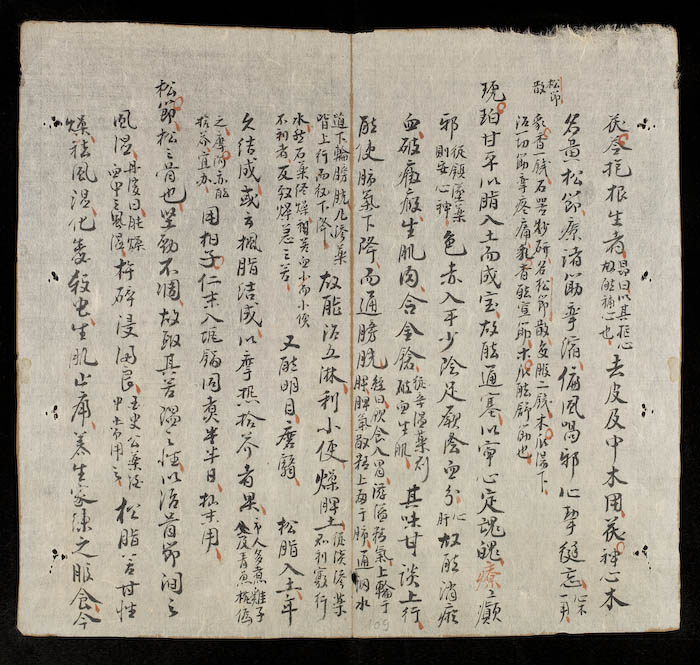 茯苓抱根生者 昂曰以其抱心 故能補心也 去皮及中木用茯神心木
名黃松節療諸筋攣縮偏風喎邪心掣健忘 心木一兩
松節散
乳香一錢石器炒研名松節散每服二錢木瓜湯下
治一切筋攣疼痛乳香能宣節木瓜能舒筋也
琥珀甘平以脂入土而成宝故能通塞以寧心定魂魄療癲
邪 從鎮墜藥 則安心神 色赤入手少陰足厥陰血分 心肝 故能消瘀
血破癥瘕生肌肉合金瘡 從辛溫藥則 破血生肌 其味甘淡上行
能使肺氣下降而通膀胱 經曰飲食入胃游溢精氣上輸于 脾脾氣散精上歸于肺通調水
道下輸膀胱凡滲藥 皆上行而后下降 故能治五淋利小便燥脾土 從淡滲藥 則利竅行
水然石藥終燥若血少而小便 不利者反致燥急之苦 又能明目磨翳 松脂入土年
久結成或云楓脂結成以摩熱拾芥者眞 市人多煮雞子 及青魚枕偽
之摩呵亦能 拾芥宜辨 用柏子仁末入瓦鍋同煮半日搗末用
松節松之骨也堅勁不凋故取其苦溫之性以治骨節間之
風濕 丹溪曰能燥 血中之風濕 杵碎浸酒良 史國公藥酒 中亦常用之 松脂苦甘性
燥祛風濕化毒殺虫生肌止痛養生家煉之服食今